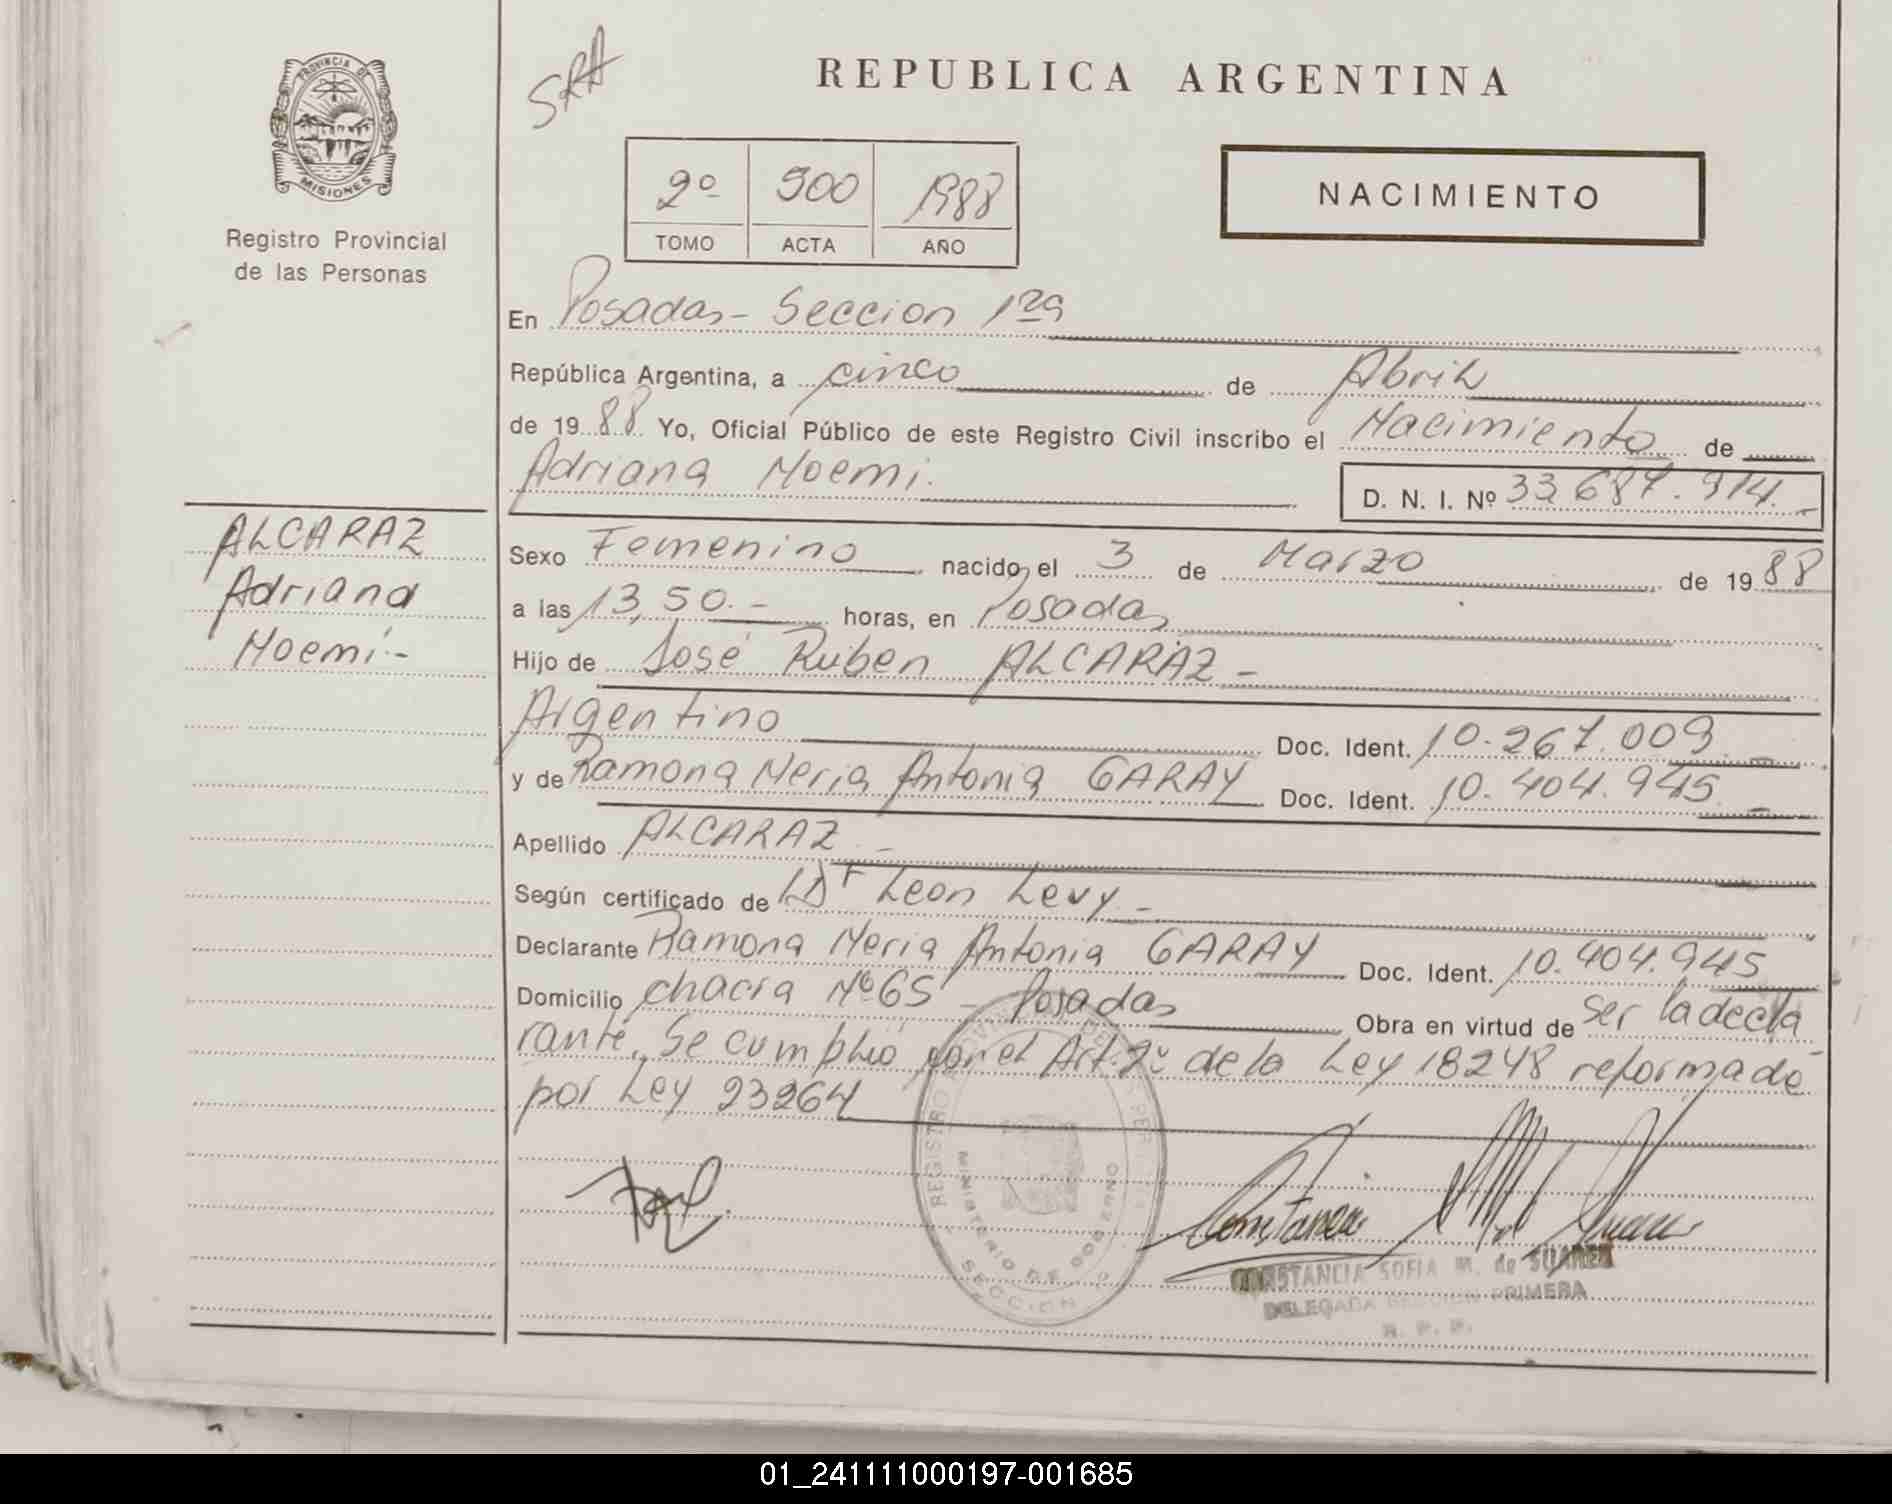 SRA
REPUBLICA ARGENTINA
PROVINCIA DE
MISIONES
Registro Provincial
de las Personas
2º 900 1988
TOMO ACTA AÑO
NACIMIENTO
En Posadas - Seccion 1ra
República Argentina, a cinco de Abril
de 1988 Yo, Oficial Público de este Registro Civil inscribo el Nacimiento de
Adriana Noemi. D. N. I. Nº 33.687.914.-
ALCARAZ
Adriana
Noemi.-
Sexo Femenino nacido el 3 de Marzo de 1988
a las 13,50.- horas, en Posadas
Hijo de José Ruben ALCARAZ -
Argentino Doc. Ident. 10.267.009 -
y de Ramona Neria Antonia GARAY Doc. Ident. 10.404.945 -
Apellido ALCARAZ . -
Según certificado de LDr Leon Levy. -
Declarante Ramona Neria Antonia GARAY Doc. Ident. 10.404.945
Domicilio chacra Nº 65 - Posadas Obra en virtud de ser la decla
rante. Se cumplió por el Art. 2º de la Ley 18248 reformado
por Ley 23264
REGISTRO PROVINCIAL DE LAS PERSONAS
MINISTERIO DE GOBIERNO
SECCION
CONSTANCIA SOFIA M. de SUAREZ
DELEGADA SECCION PRIMERA
R. P. P.
01_241111000197-001685